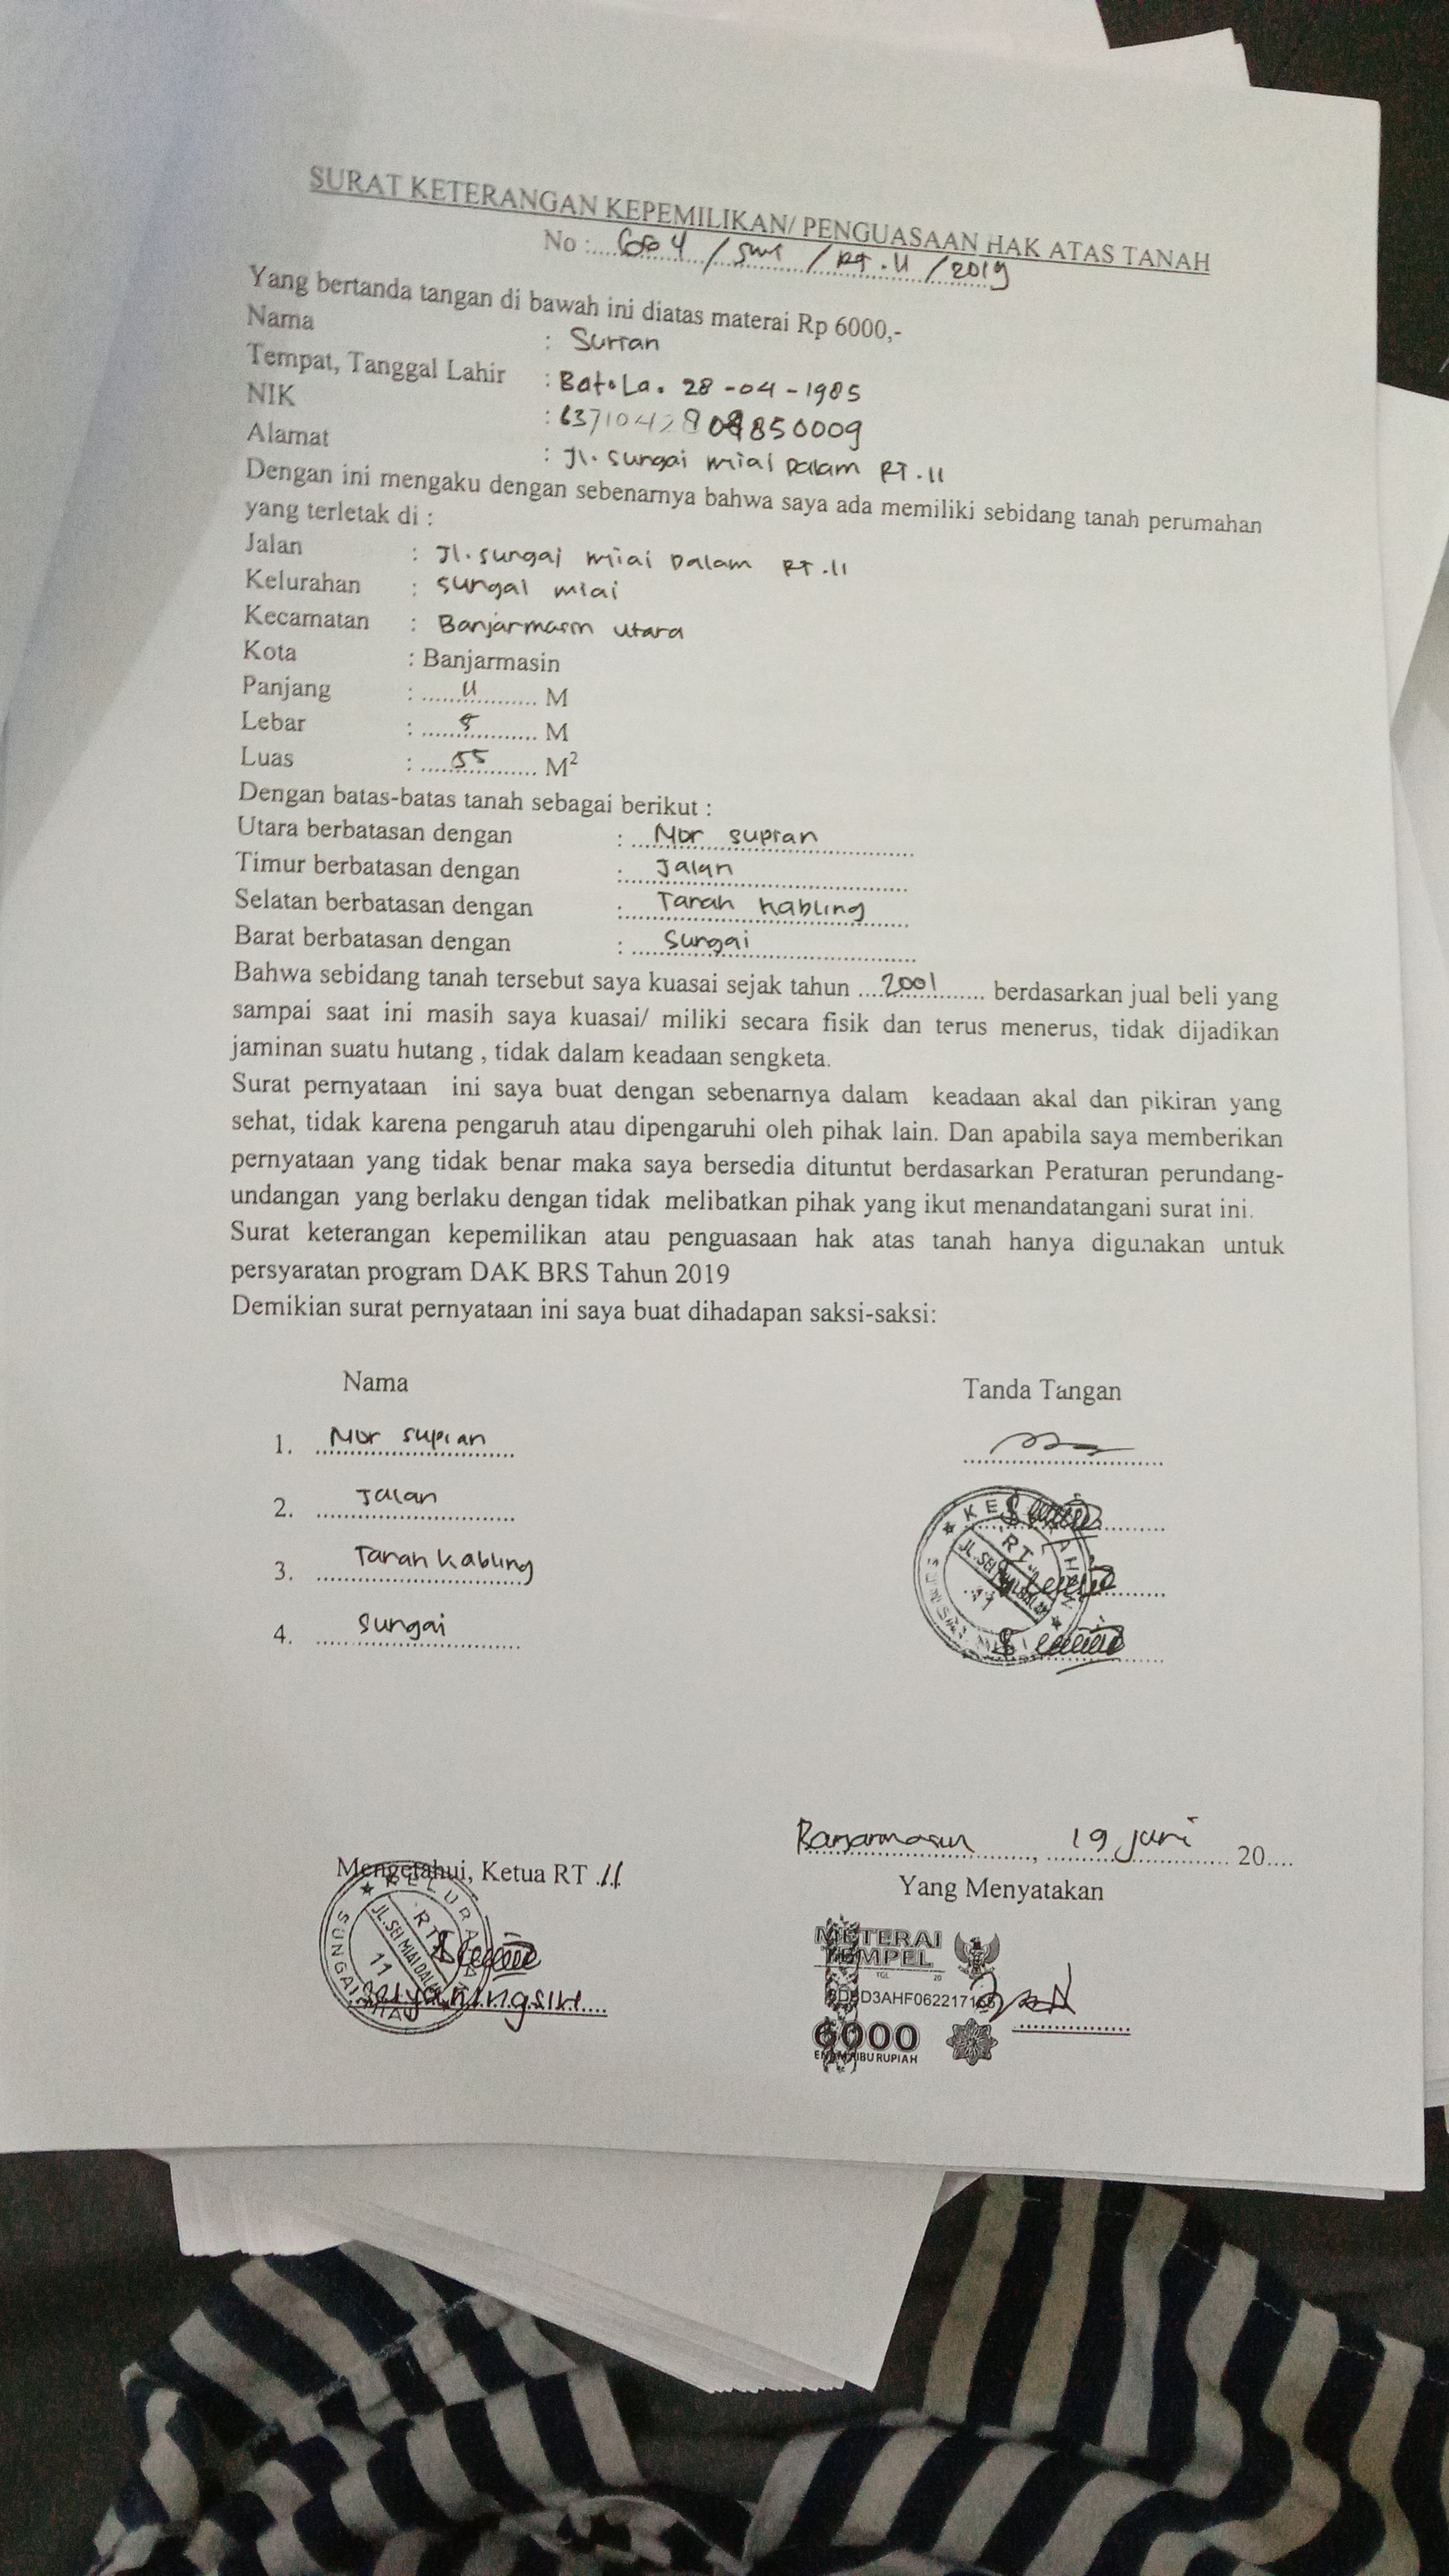 SURAT KETERANGAN KEPEMILIKAN/ PENGUASAAN HAK ATAS TANAH
No : / / RT.11 / 2019
Yang bertanda tangan di bawah ini diatas materai Rp 6000,-
Nama :
Tempat, Tanggal Lahir : Batola. 28-04-1985
NIK :
Alamat : Jl. Sungai miai Dalam RT.11
Dengan ini mengaku dengan sebenarnya bahwa saya ada memiliki sebidang tanah perumahan
yang terletak di :
Jalan : Jl. sungai miai Dalam RT.11
Kelurahan : sungai miai
Kecamatan : Banjarmasin utara
Kota : Banjarmasin
Panjang : 11 M
Lebar : 5 M
Luas : 55 M²
Dengan batas-batas tanah sebagai berikut :
Utara berbatasan dengan : Nor supian
Timur berbatasan dengan : Jalan
Selatan berbatasan dengan : Tanah kabling
Barat berbatasan dengan : Sungai
Bahwa sebidang tanah tersebut saya kuasai sejak tahun 2001 berdasarkan jual beli yang
sampai saat ini masih saya kuasai/ miliki secara fisik dan terus menerus, tidak dijadikan
jaminan suatu hutang , tidak dalam keadaan sengketa.
Surat pernyataan ini saya buat dengan sebenarnya dalam keadaan akal dan pikiran yang
sehat, tidak karena pengaruh atau dipengaruhi oleh pihak lain. Dan apabila saya memberikan
pernyataan yang tidak benar maka saya bersedia dituntut berdasarkan Peraturan perundang-
undangan yang berlaku dengan tidak melibatkan pihak yang ikut menandatangani surat ini.
Surat keterangan kepemilikan atau penguasaan hak atas tanah hanya digunakan untuk
persyaratan program DAK BRS Tahun 2019
Demikian surat pernyataan ini saya buat dihadapan saksi-saksi:
Nama Tanda Tangan
1. Nor supian
2. Jalan
3. Tanah Kabling
4. Sungai
Banjarmasin, 19 juni 20....
Mengetahui, Ketua RT 11
Yang Menyatakan
KELURAHAN
RT.
JL. SEI MIAI DALAM
11
SUNGAI MIAI
Setyaningsih
METERAI
TEMPEL
TGL 20
6000
ENAM RIBU RUPIAH